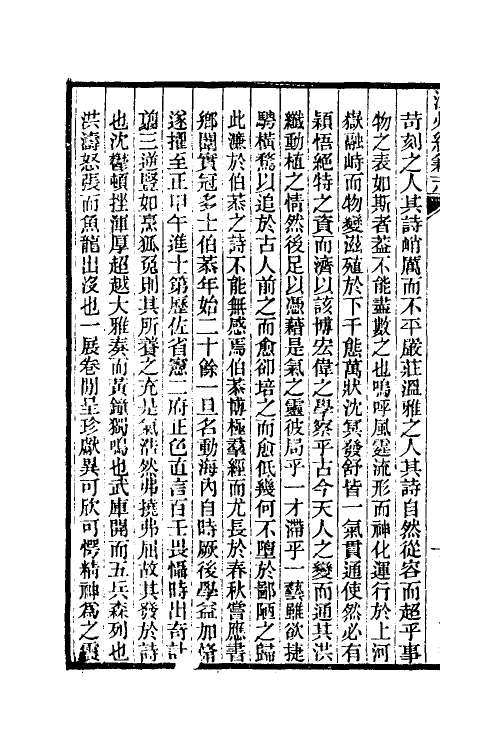 苛刻之人其詩峭厲而不平嚴莊溫雅之人其詩自然從容而超乎事
物之表如斯者葢不能盡數之也嗚呼風霆流形而神化運行於上河
嶽融峙而物變滋殖於下千態萬狀沈冥發舒皆一氣貫通使然必有
穎悟絕特之資而濟以該博宏偉之學察乎古今天人之變而通其洪
纖動植之情然後足以憑藉是氣之靈彼局乎一才滯乎一藝雖欲捷
騁橫騖以追於古人前之而愈卻培之而愈低幾何不墮於鄙陋之歸
此濂於伯恭之詩不能無感焉伯恭博極羣經而尤長於春秋嘗應書
鄉闈實冠多士伯恭年始二十餘一旦名動海內自時厥後學益加脩
遂擢至正甲午進士第歷佐省憲二府正色直言百壬畏懾時出奇計
翦三逆豎如烹狐兔則其所養之充是氣浩然弗撓弗屈故其發於詩
也沈鬱頓挫渾厚超越大雅奏而黃鐘獨鳴也武庫開而五兵森列也
洪濤怒張而魚龍出沒也一展卷閒呈珍獻異可欣可愕精神為之震